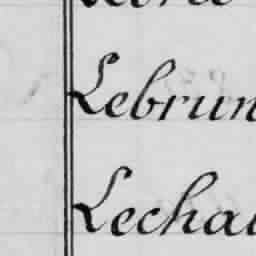 Lebrun
Lechal